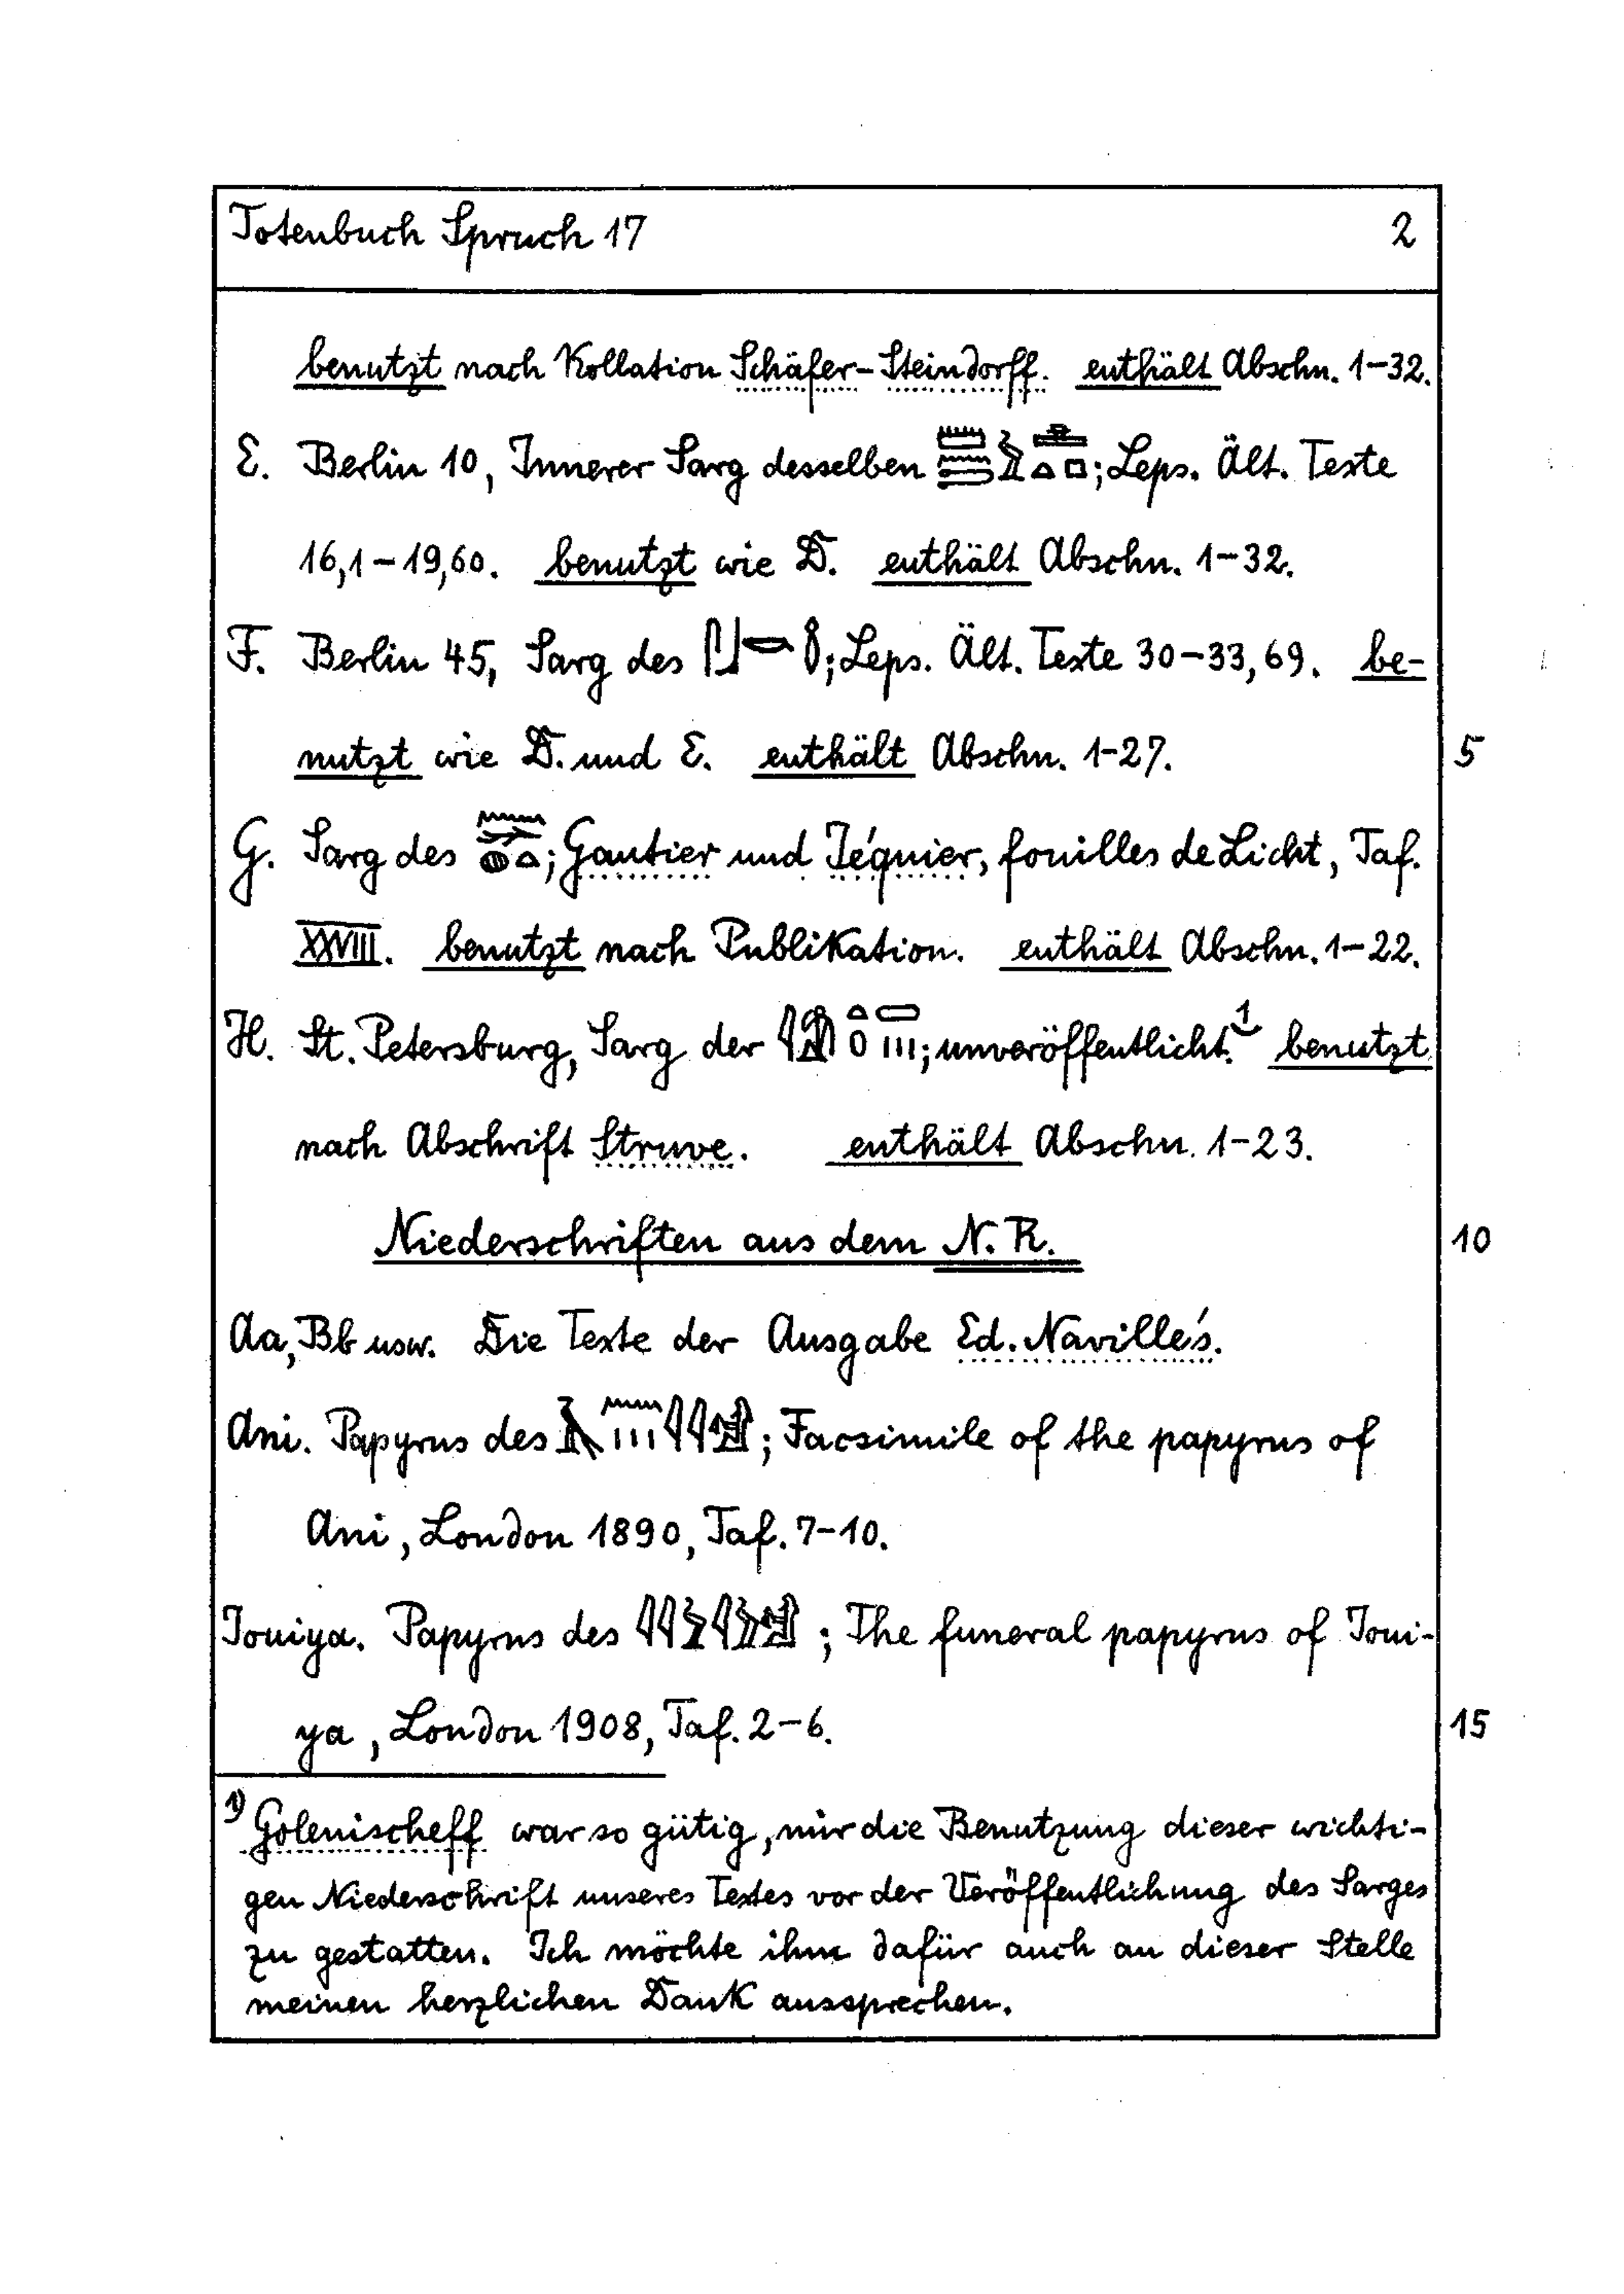 Totenbuch Spruch 17 2
benutzt nach Kollation Schäfer-Steindorff. enthält Abschn. 1-32.
E. Berlin 10, Innerer Sarg desselben ; Leps. Ält. Texte
16,1-19,60. benutzt wie D. enthält Abschn. 1-32.
F. Berlin 45, Sarg des ; Leps. Ält. Texte 30-33,69. be-
nutzt wie D. und E. enthält Abschn. 1-27. 5
G. Sarg des ; Gautier und Jéquier, fouilles de Licht, Taf.
XXVIII. benutzt nach Publikation. enthält Abschn. 1-22.
H. St. Petersburg, Sarg der ; unveröffentlicht.1 benutzt
nach Abschrift Struve. enthält Abschn. 1-23.
Niederschriften aus dem N. R. 10
Aa, Bb usw. Die Texte der Ausgabe Ed. Naville's.
Ani. Papyrus des ; Facsimile of the papyrus of
Ani, London 1890, Taf. 7-10.
Iouiya. Papyrus des ; The funeral papyrus of Ioui-
ya, London 1908, Taf. 2-6. 15
1) Golenischeff war so gütig, mir die Benutzung dieser wichti-
gen Niederschrift unseres Textes vor der Veröffentlichung des Sarges
zu gestatten. Ich möchte ihm dafür auch an dieser Stelle
meinen herzlichen Dank aussprechen.